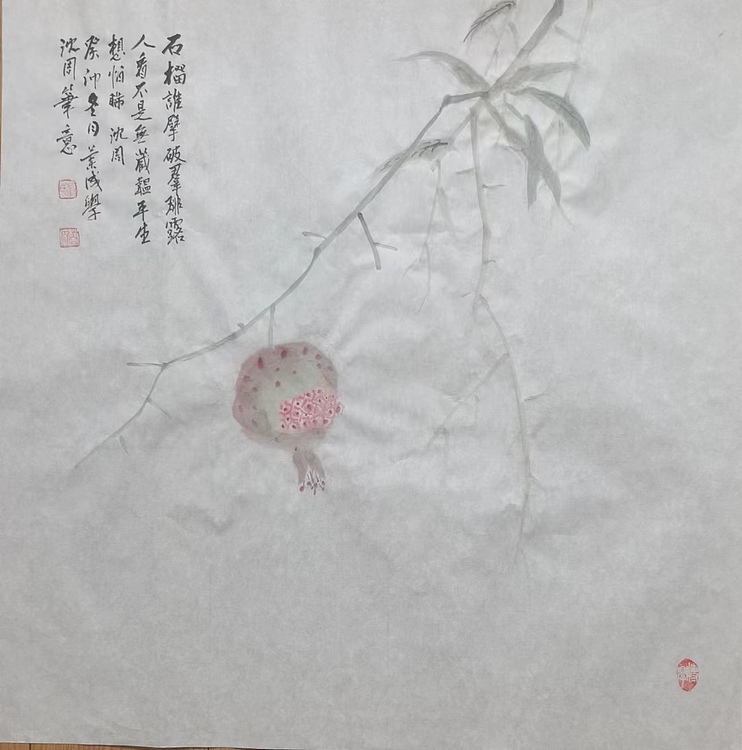 石榴誰擘破羣琲露
人看不是無藏韞平生
想怕瞞 沈周
癸卯冬月成學
沈周筆意